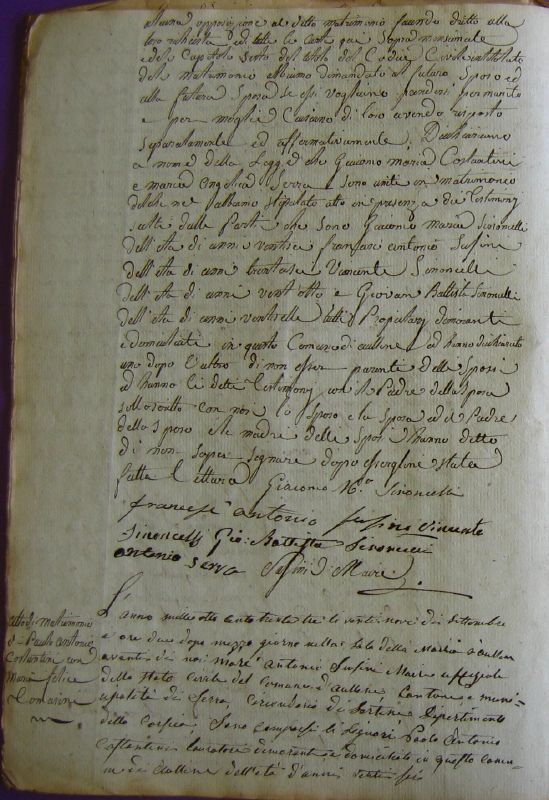 alcuna opposizione al detto matrimonio facendo dritto alla
loro richiesta ed tutte le carte qui sopra menzionate
e del Capitolo Sesto del titolo del Codice Civile intitolato
del Matrimonio abbiamo domandato al futuro Sposo ed
alla futtura Sposa se essi vogliono prendersi per marito
e per moglie Ciascuno di loro avendo risposto
separatamente ed affermativamente. Dichiariamo
a nome della Legge che Giacomo Maria Costantini
e Maria Angelica Serra sono uniti in matrimonio
del che ne abbiamo stipulato atto in presenza di Testimonj
scelti dalle Parti che sono Giacomo Maria Simoncelli
dell'età di anni ventitre francesc' antonio Susini
dell'età di anni trentasei Vincente Simoncelli
dell'età di anni vent'otto e Giovan Battista Simoncelli
dell'età di anni tutti Propietarj dimoranti
e domiciliati in questo Comune di aullene ed hanno dichiarato
uno dopo l'altro di non esser parenti delli Sposi
ed hanno li detti Testimonj con il Padre della Sposa
sottoscritto con noi lo Sposo e la Sposa ed il Padre
dello Sposo e le madri delli Sposi hanno detto
di non saper segnare dopo essergline stata
fatta lettura Giacomo M.a Simoncelli
francesc' antonio Susini Vincente
Simoncelli Gio: Battista Simoncelli
antonio Serra Susini Di Maire
atto di matrimonio
di Paulo antonio
Costantini con
Maria felice
Comarini
L'anno mille otto cento trenta tre li venti nove di Settembre
a ore due dopo mezzo giorno nella Sala della Maeria d'aullene
avanti di noi Marc' Antonio Susini Maire uffiziale
dello Stato Civile del comune d'aullene Cantone e muni-
cipalità di Serra, Circondario di Sartene Dipartimento
della Corsica, Sono comparsi li Signori Paolo Antonio
Costantini lavoratore dimorante e domiciliato in questo comu-
ne di aullene dell'età d'anni venti sei